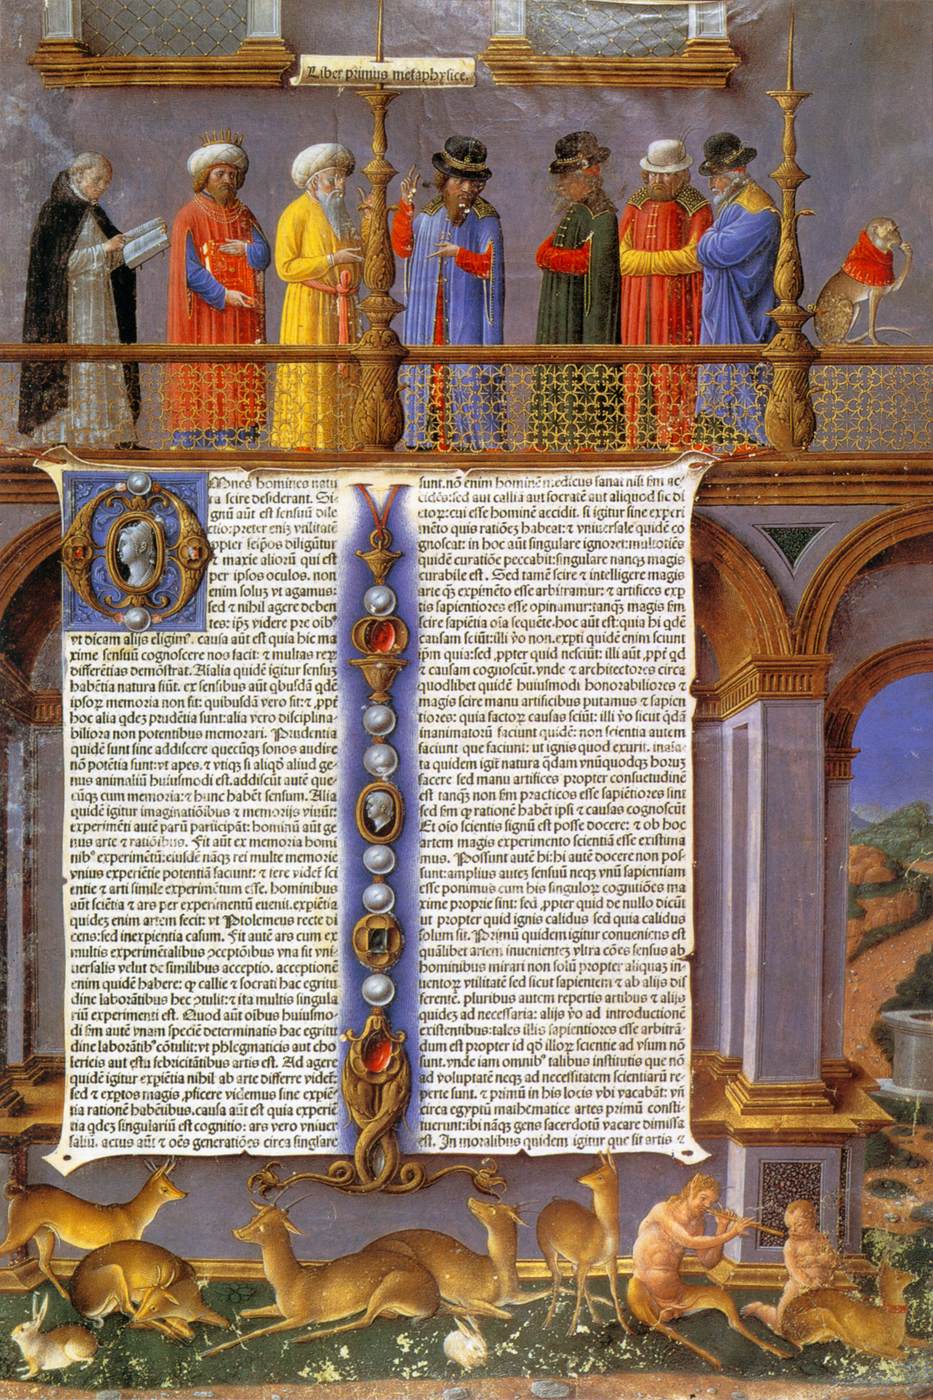 Liber primus metaphysice.
Mnes homines natu
ra scire desiderant. Si
gnū aūt est sensuū dile
ctio: preter eniʒ vtilitatē
ꝓpter seip̄os diligūtur
⁊ maxie aliorū qui est
per ipsos oculos. non
enim soluʒ vt agamus:
sed ⁊ nihil agere deben
tes: ip̄ʒ videre pre oībꝰ
vt dicam alijs eligimꝰ. causa aūt est quia hic ma
xime sensuū cognoscere nos facit: ⁊ multas reꝝ
differētias demōstrat. Aīalia quidē igitur sensuʒ
habētia natura fiūt. ex sensibus aūt qbusdā qdē
ipsoꝝ memoria non fit: quibusdā vero fit: ⁊ ꝓpt
hoc alia qdeʒ prudētia sunt: alia vero disciplina
biliora non potentibus memorari. Prudentia
quidē sunt sine addiscere quecūqʒ sonos audire
nō potētia sūnt: vt apes. ⁊ vtiqʒ si aliqd aliud ge
nus animaliū huiusmodi est. addiscūt autē que
cūqʒ cum memoria: ⁊ hunc habēt sensum. Alia
quidē igitur imaginatiōibus ⁊ memorijs viuūt:
experimēti autē parū participāt: hominū aūt ge
nus arte ⁊ ratiōibus. Fit aūt ex memoria homi
nibꝰ experimētū: eiusdē nāqʒ rei multe memorie
vnius experiētie potentiā faciunt: ⁊ fere videt̄ sci
entie ⁊ arti simile experimētum esse. hominibus
aūt sciētia ⁊ ars per experimētū euenit. expiētia
quideʒ enim artem fecit: vt Ptolemeus recte di
cens: sed inexpientia casum. Fit autē ars cum ex
multis experimētalibus ↄceptōibus vna fit vni
uersalis velut de similibus acceptio. acceptionē
enim quidē habere: ꝙ callie ⁊ socrati hac egritu
dine laborātibus hec ↄtulit: ⁊ ita multis singula
riū experimenti est. Quod aūt oībus huiusmo
di ẜm autē vnam speciē determinatis hac egritu
dine laborātibꝰ cōtulit: vt phlegmaticis aut cho
lericis aut estu febricitātibus artis est. Ad agere
quidē igitur expiētia nihil ab arte differre videt̄:
sed ⁊ exptos magis ꝓficere videmus sine expiē
tia rationē habētibus. causa aūt est quia experiē
tia qdeʒ singulariū est cognitio: ars vero vniuer
saliū. actus aūt ⁊ oēs generatiōes circa singlare
sunt. nō enim hominē medicus sanat nisi ẜm ac
cidēs: sed aut calliā aut socratē aut aliquod sic di
ctoꝝ: cui esse hominē accidit. si igitur sine experi
mēto quis ratiōeʒ habeat: ⁊ vniuersale quidē co
gnoscat: in hoc aūt singulare ignoret: multotiēs
quidē curatiōe peccabit: singulare nanqʒ magis
curabile est. Sed tamē scire ⁊ intelligere magis
arte qʒ expimēto esse arbitramur: ⁊ artifices exp
tis sapientiores esse opinamur: tanqʒ magis ẜm
scire sapiētia oīa sequēte. hoc aūt est: quia hi qdē
causam sciūt: illi ꝟo non. expti quidē enim sciunt
ip̄m quia: sed ꝓpter quid nesciūt: illi aūt ꝓpt̄ qd
⁊ causam cognoscūt. vnde ⁊ architectores circa
quodlibet quidem huiusmodi honorabiliores ⁊
magis scire manu artificibus putamus ⁊ sapien
tiores: quia factoꝝ causas sciūt: illi ꝟo sicut qdā
inanimatorū faciunt quidē: non scientia autem
faciunt que faciunt: ut ignis quod exurit. inaīa
ta quidem igit̄ natura qdam vnūquodqʒ horuʒ
facere sed manu artifices propter consuetudinē
est tanqʒ non ẜm practicos esse sapiētiores sint
sed ẜm ꝙ rationē habēt ipsi ⁊ causas cognoscūt
Et oīo scientis signū est posse docere: ⁊ ob hoc
artem magis experimento scientiā esse existima
mus. Possunt autē hi: hi autē docere non pos-
sunt: amplius auteʒ sensuū neqʒ vnū sapientiam
esse ponimus cum his singuloꝝ cognitiōes ma
xime proprie sint: sed ꝓpter quid de nullo dicūt
ut propter quid ignis calidus sed quia calidus
solum sit. Primū quidem igitur conueniens est
qualibet artem inuenientē vltra cōes sensus ab
hominibus mirari non solū propter aliquaʒ in-
uentoꝝ vtilitatē sed sicut sapientem ⁊ ab alijs dif
ferentē. pluribus autem repertis artibus ⁊ alijs
quideʒ ad necessaria: alijs ꝟo ad introductionē
existentibus: tales illis sapientiores esse arbitrā
dum est propter id qd illoꝝ scientie ad vsum nō
sunt. vnde iam omnibꝰ talibus institutis que nō
ad voluptatē neqʒ ad necessitatem scientiarū re-
perte sunt. ⁊ primū in his locis vbi vacabāt: vn̄
circa egyptū mathematice artes primū consti-
tuerunt: ibi nāqʒ gens sacerdotū vacare dimissa
est. In moralibus quidem igitur que sit artis ⁊